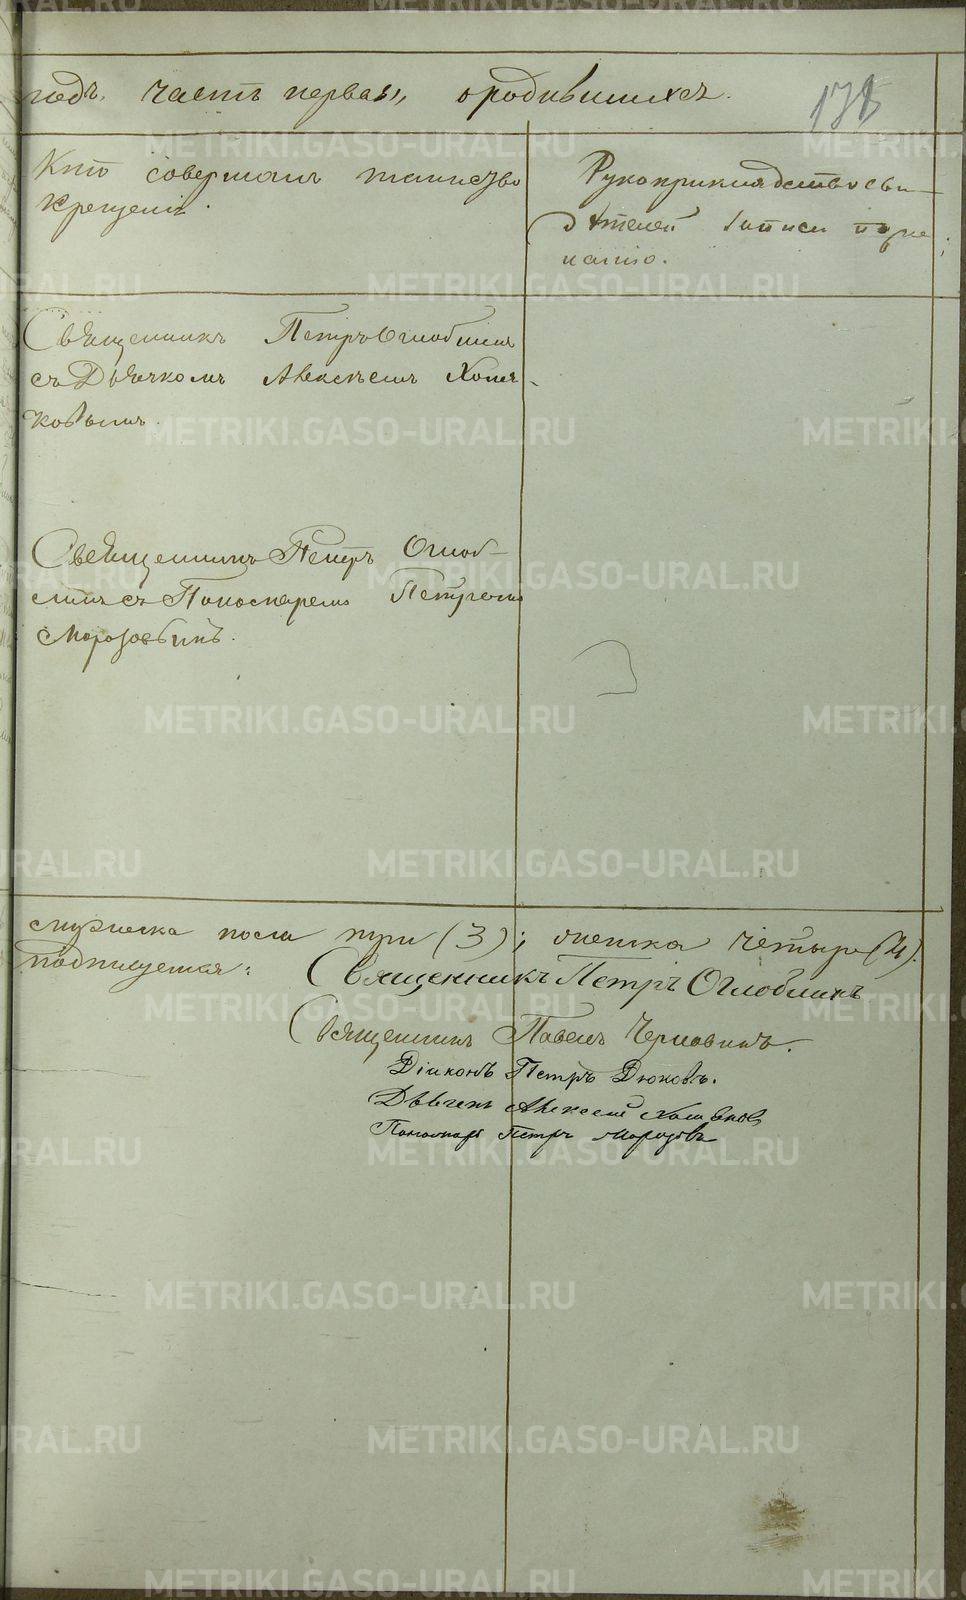 годъ, часть первая, о родившихся.
178
Кто совершалъ таинство
крещенія.
Рукоприкладство сви-
дѣтелей записи по же-
ланію.
Священникъ Петръ Оглоблинъ
съ Дьячкомъ Алексѣемъ Хомя-
ковымъ.
Священникъ Петръ Оглоб-
линъ съ Пономаремъ Петромъ
Морозовымъ.
мужеска пола три (3); женска четыре (4).
подпишемся:
Священникъ Петръ Оглоблинъ
Священникъ Павелъ
Діаконъ Петръ Дюковъ.
Дьячекъ Алексѣй Хомяковъ
Пономарь Петръ Морозовъ
METRIKI.GASO-URAL.RU